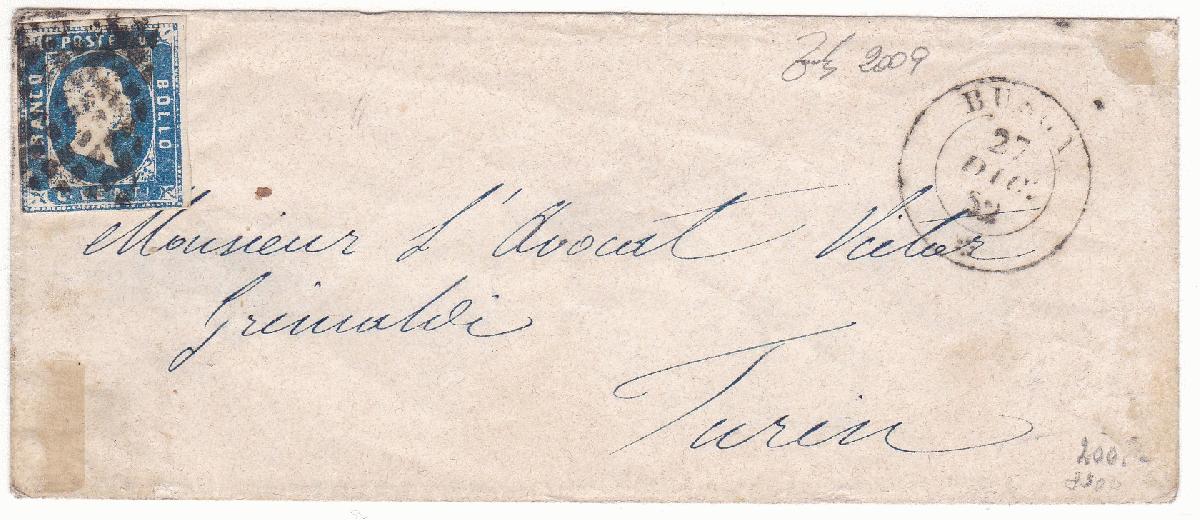 POSTE
FRANCO
BOLLO
2009
BUSCA
27
DIC.
52
Monsieur L'Avocat Victor
Grimaldi
Turin
200.-